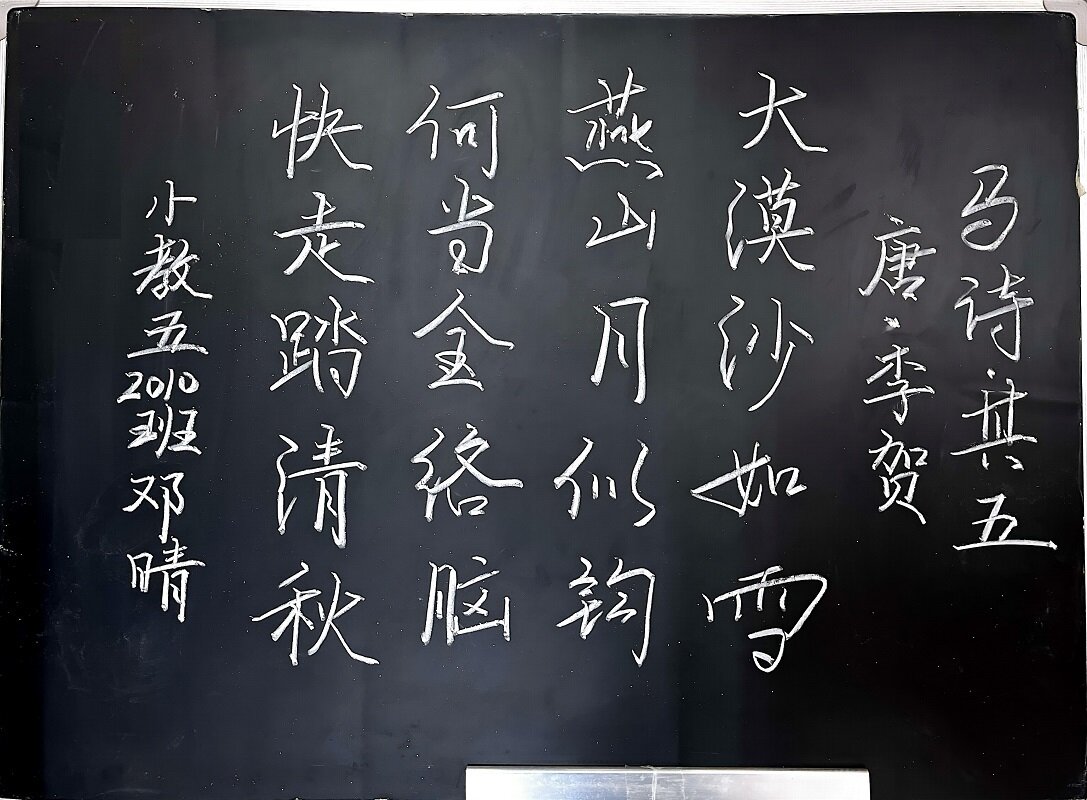 马诗·其五
唐·李贺
大漠沙如雪
燕山月似钩
何当金络脑
快走踏清秋
小教五2010班邓晴